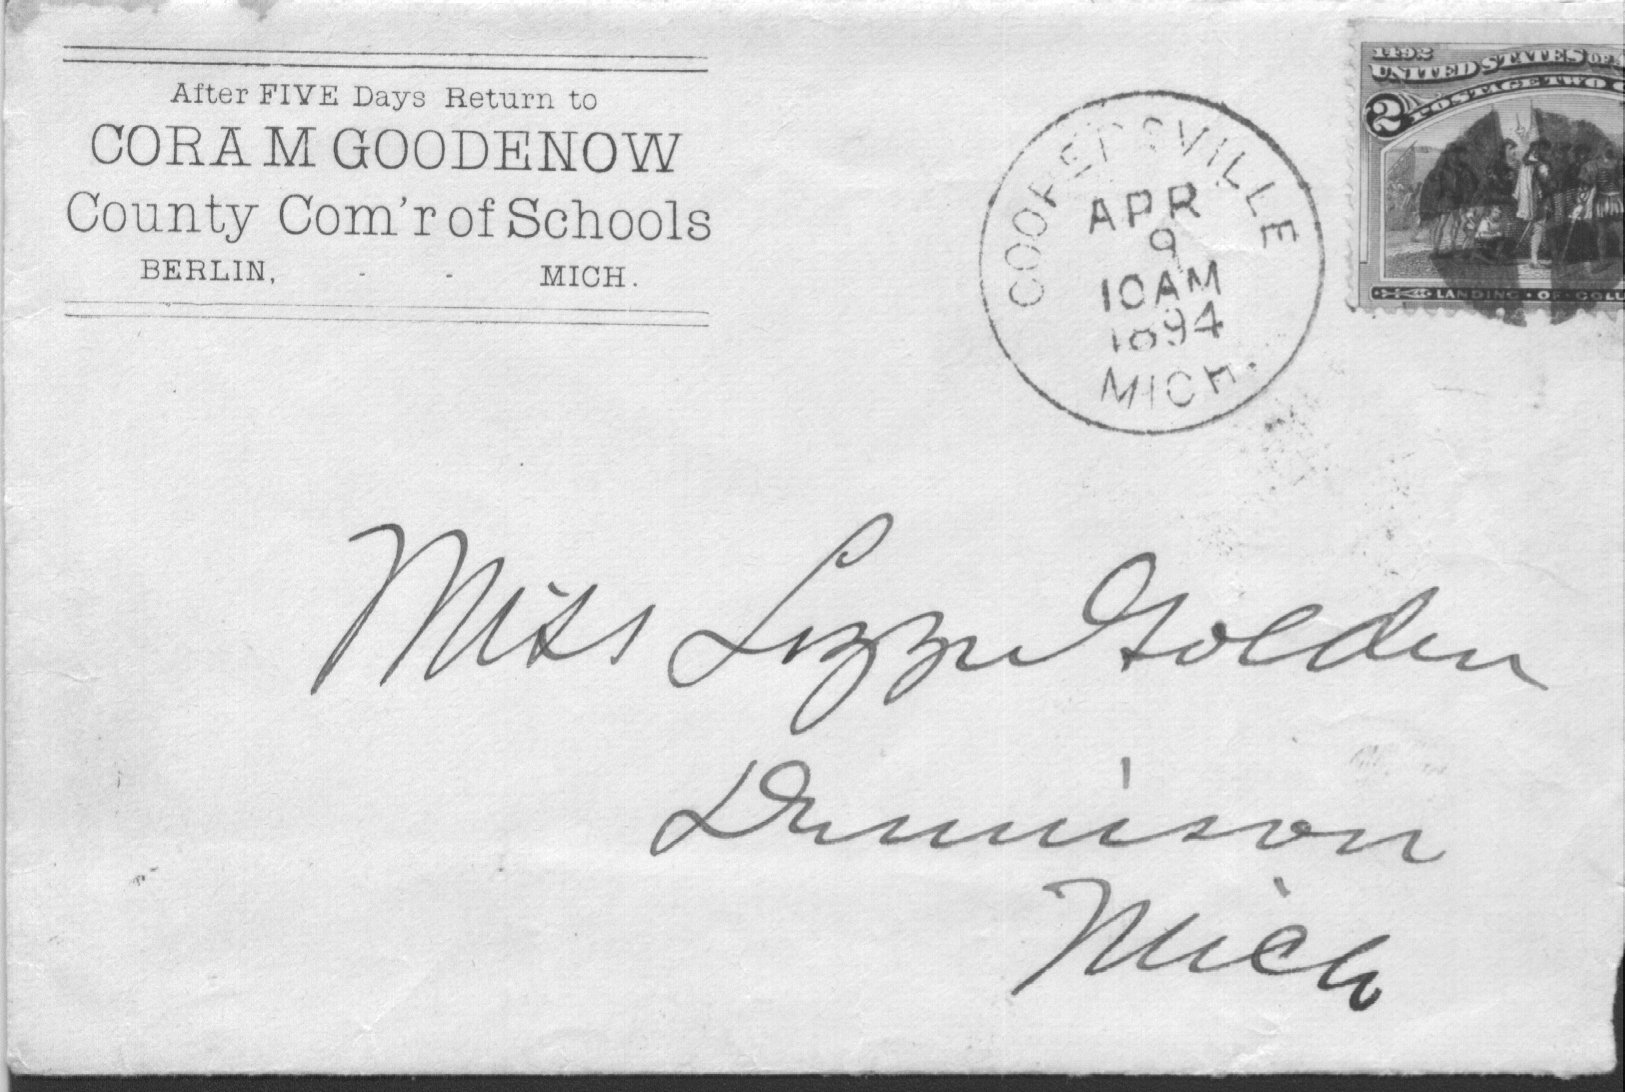 After FIVE Days Return to
CORA M GOODENOW
County Com'r of Schools
BERLIN, - - MICH.
COOPERSVILLE
APR
9
10AM
1894
MICH.
1492
UNITED STATES OF
POSTAGE TWO
2
LANDING OF COLU
Miss Lizzie Golden
Dennison
Mich